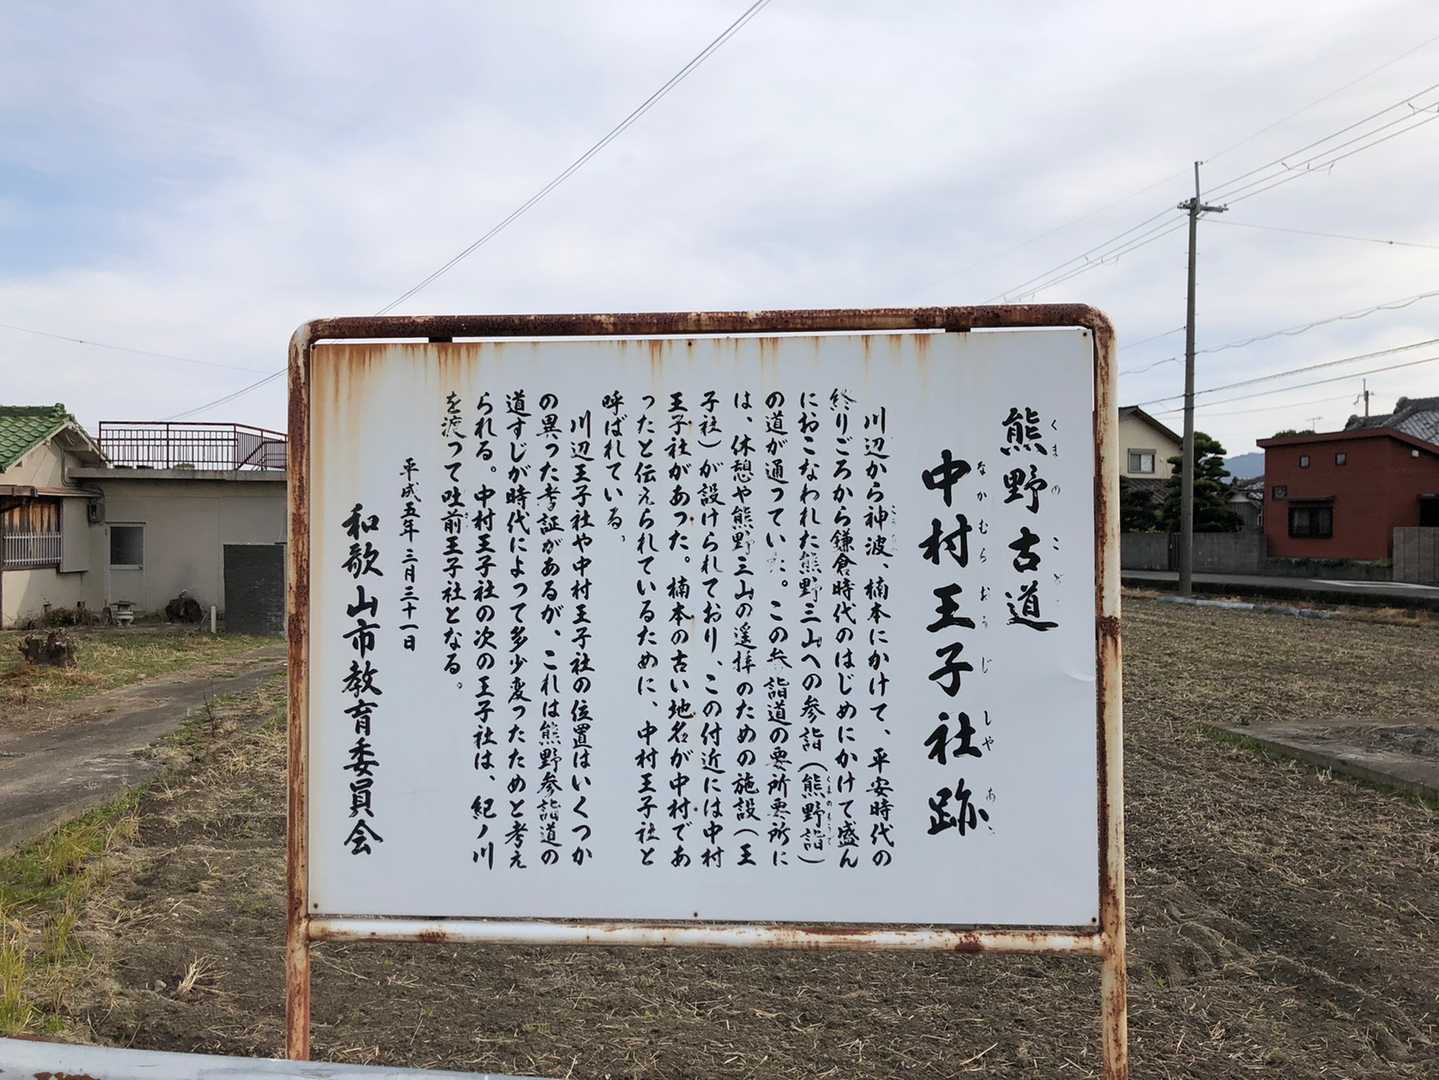 熊野古道
くまのこどう
中村王子社跡
なかむらおうじしゃあと
川辺から神波、楠本にかけて、平安時代の
終りごろから鎌倉時代のはじめにかけて盛ん
におこなわれた熊野三山への参詣（熊野詣）
くまのもうで
の道が通っていた。この参詣道の要所要所に
は、休憩や熊野三山の遥拝のための施設（王
子社）が設けられており、この付近には中村
王子社があった。楠本の古い地名が中村であ
ったと伝えられているために、中村王子社と
呼ばれている。
川辺王子社や中村王子社の位置はいくつか
の異った考証があるが、これは熊野参詣道の
道すじが時代によって多少変ったためと考え
られる。中村王子社の次の王子社は、紀ノ川
を渡って吐前王子社となる。
平成五年三月三十一日
和歌山市教育委員会